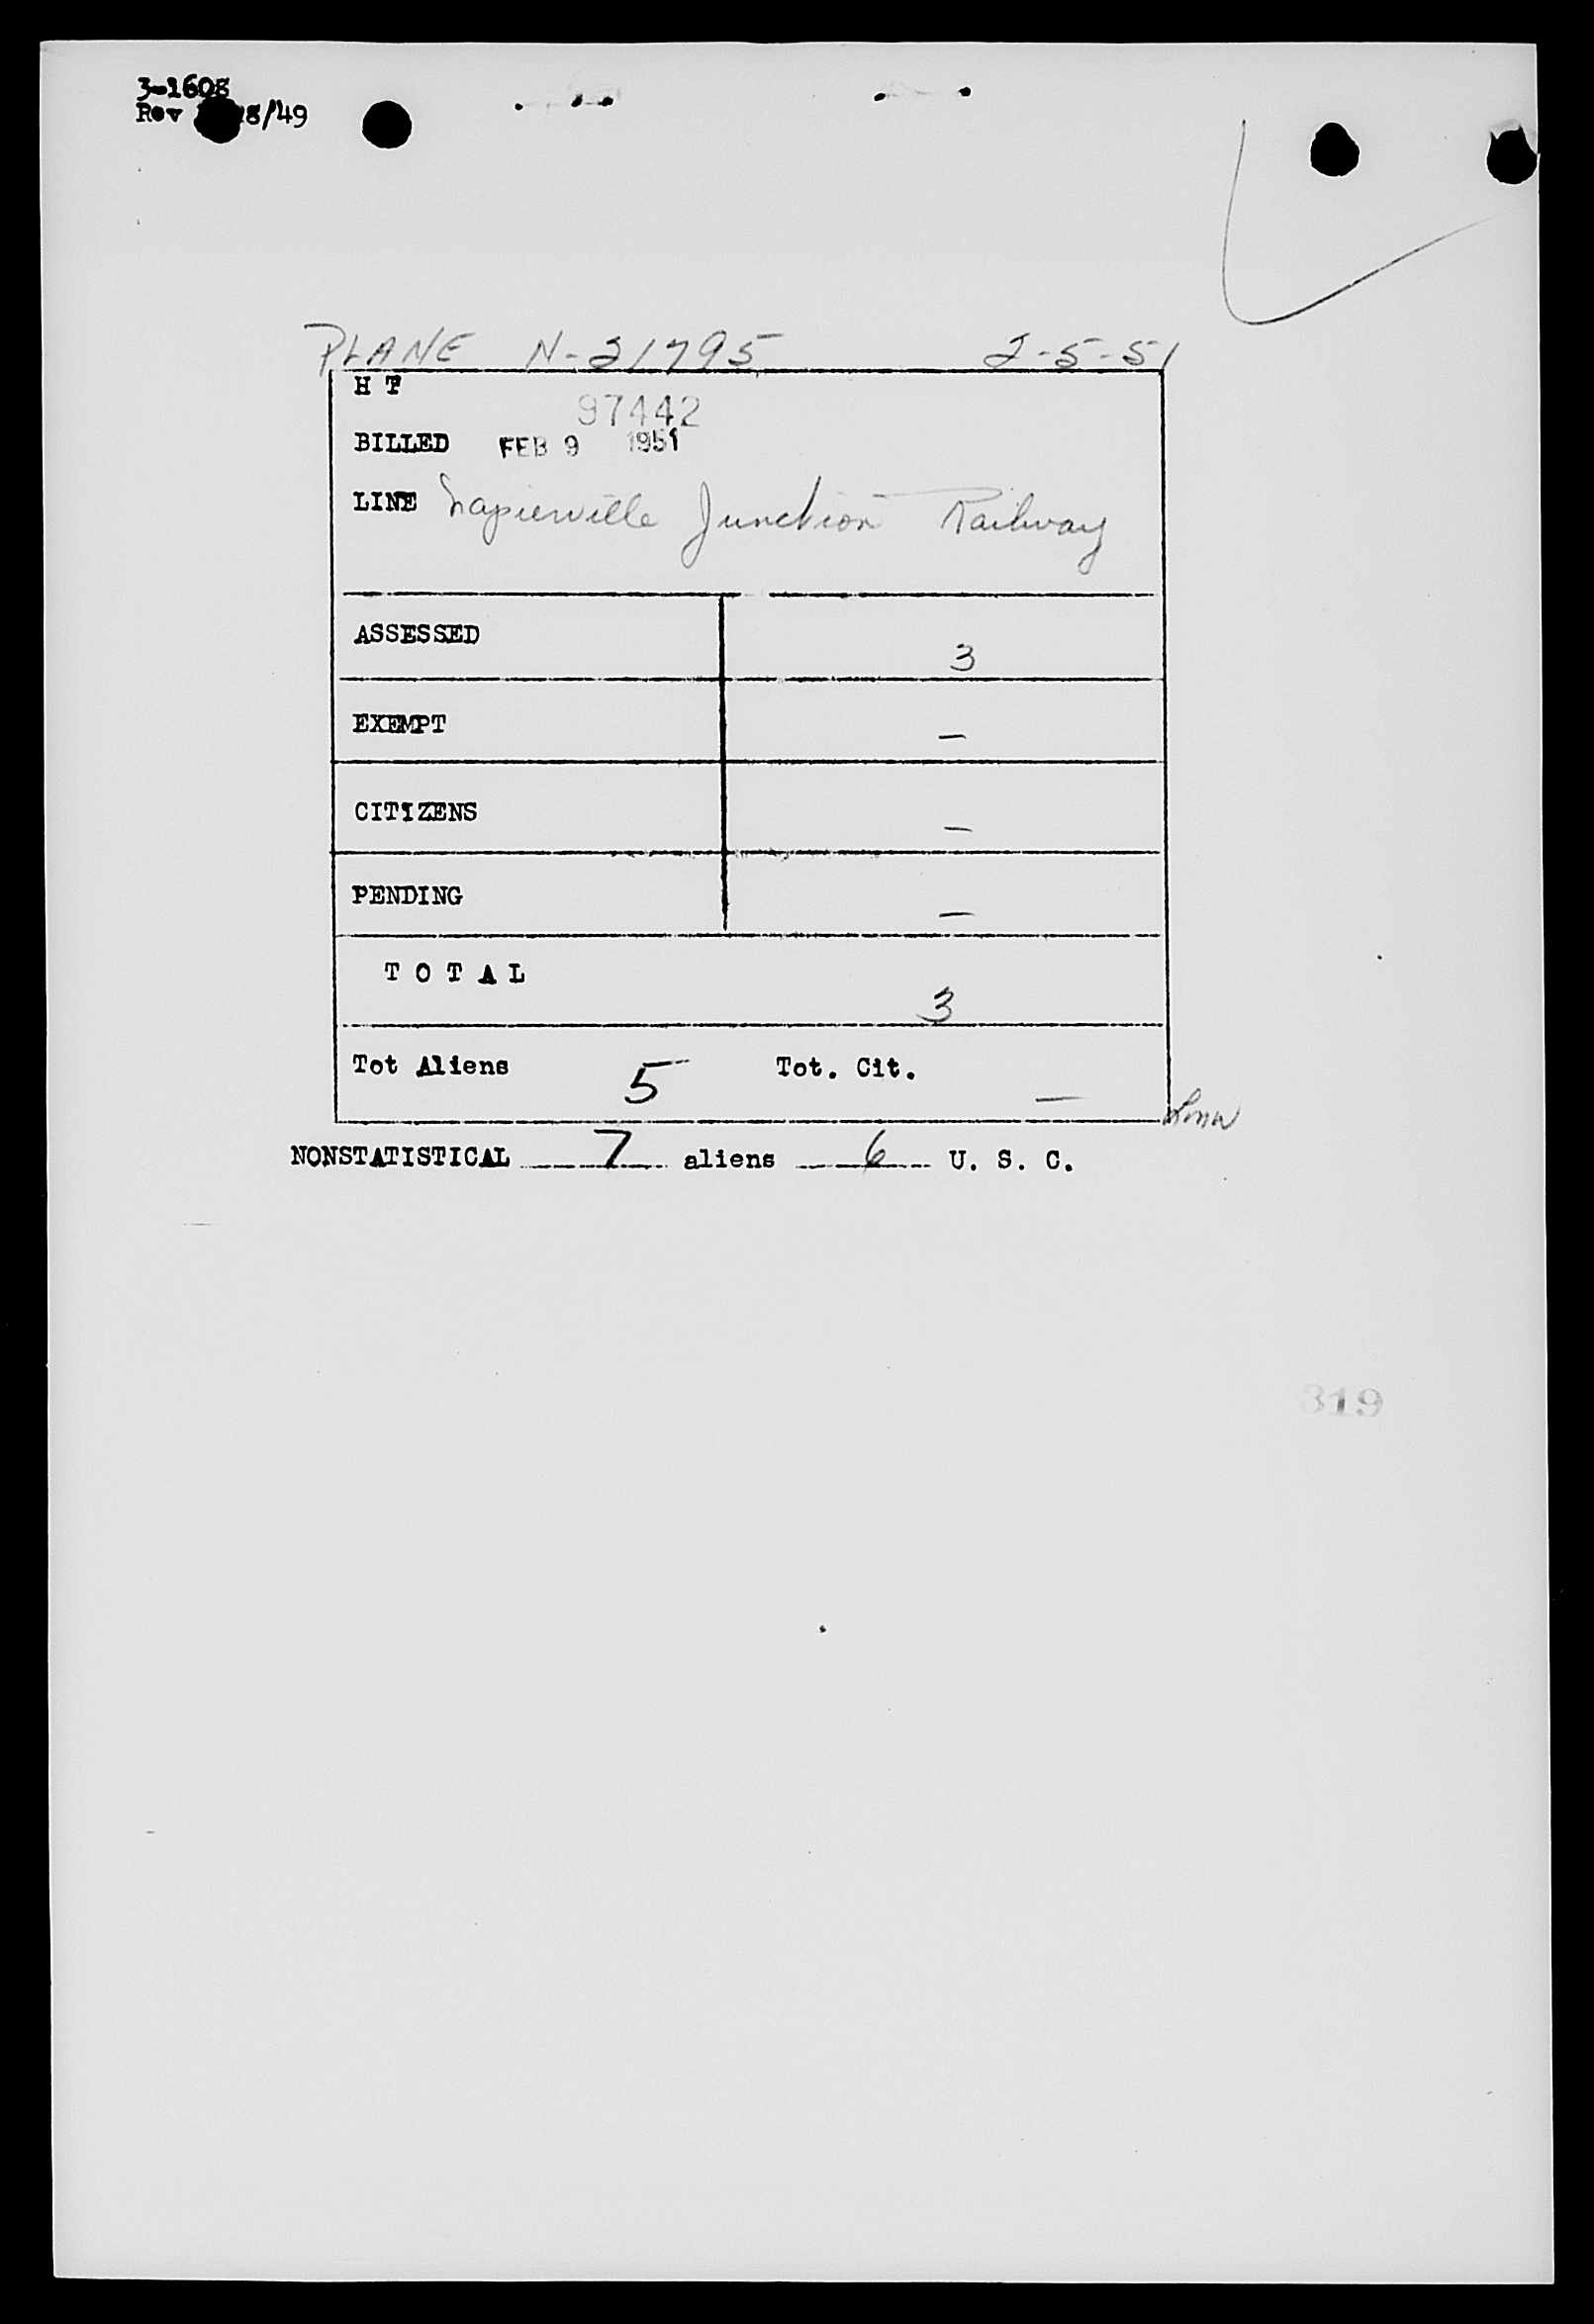 3-1608
Rev 18/49
PLANE N-21795 2-5-51
H T
97442
BILLED FEB 9 1951
LINE Napierville Junction Railway
ASSESSED 3
EXEMPT —
CITIZENS —
PENDING —
T O T A L 3
Tot Aliens 5 Tot. Cit. —
NONSTATISTICAL 7 aliens 6 U. S. C.
319